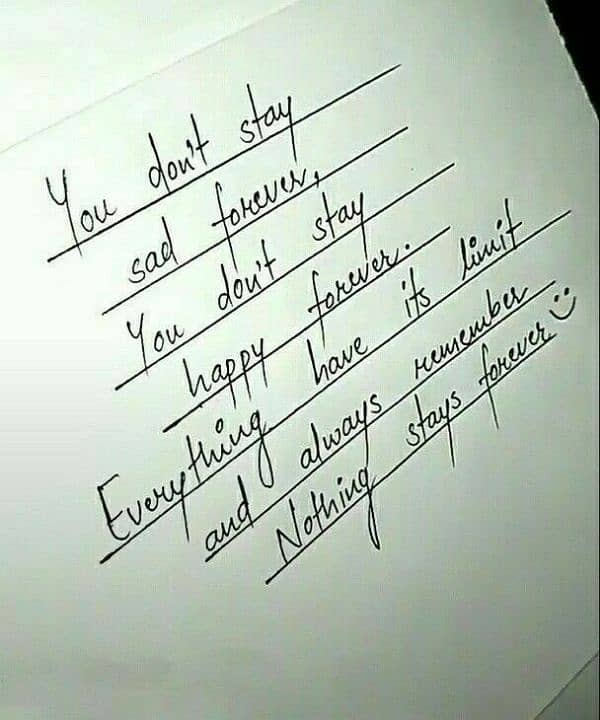 You don't stay
sad forever,
You don't stay
happy forever.
Everything have its limit
and always remember
Nothing stays forever